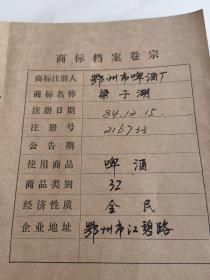 商标档案卷宗
商标注册人 鄂州市啤酒厂
商标名称 梁子湖
注册日期 84.12.15.
注册号 216733
公告期
使用商品 啤酒
商品类别 32
经济性质 全民
企业地址 鄂州市江碧路